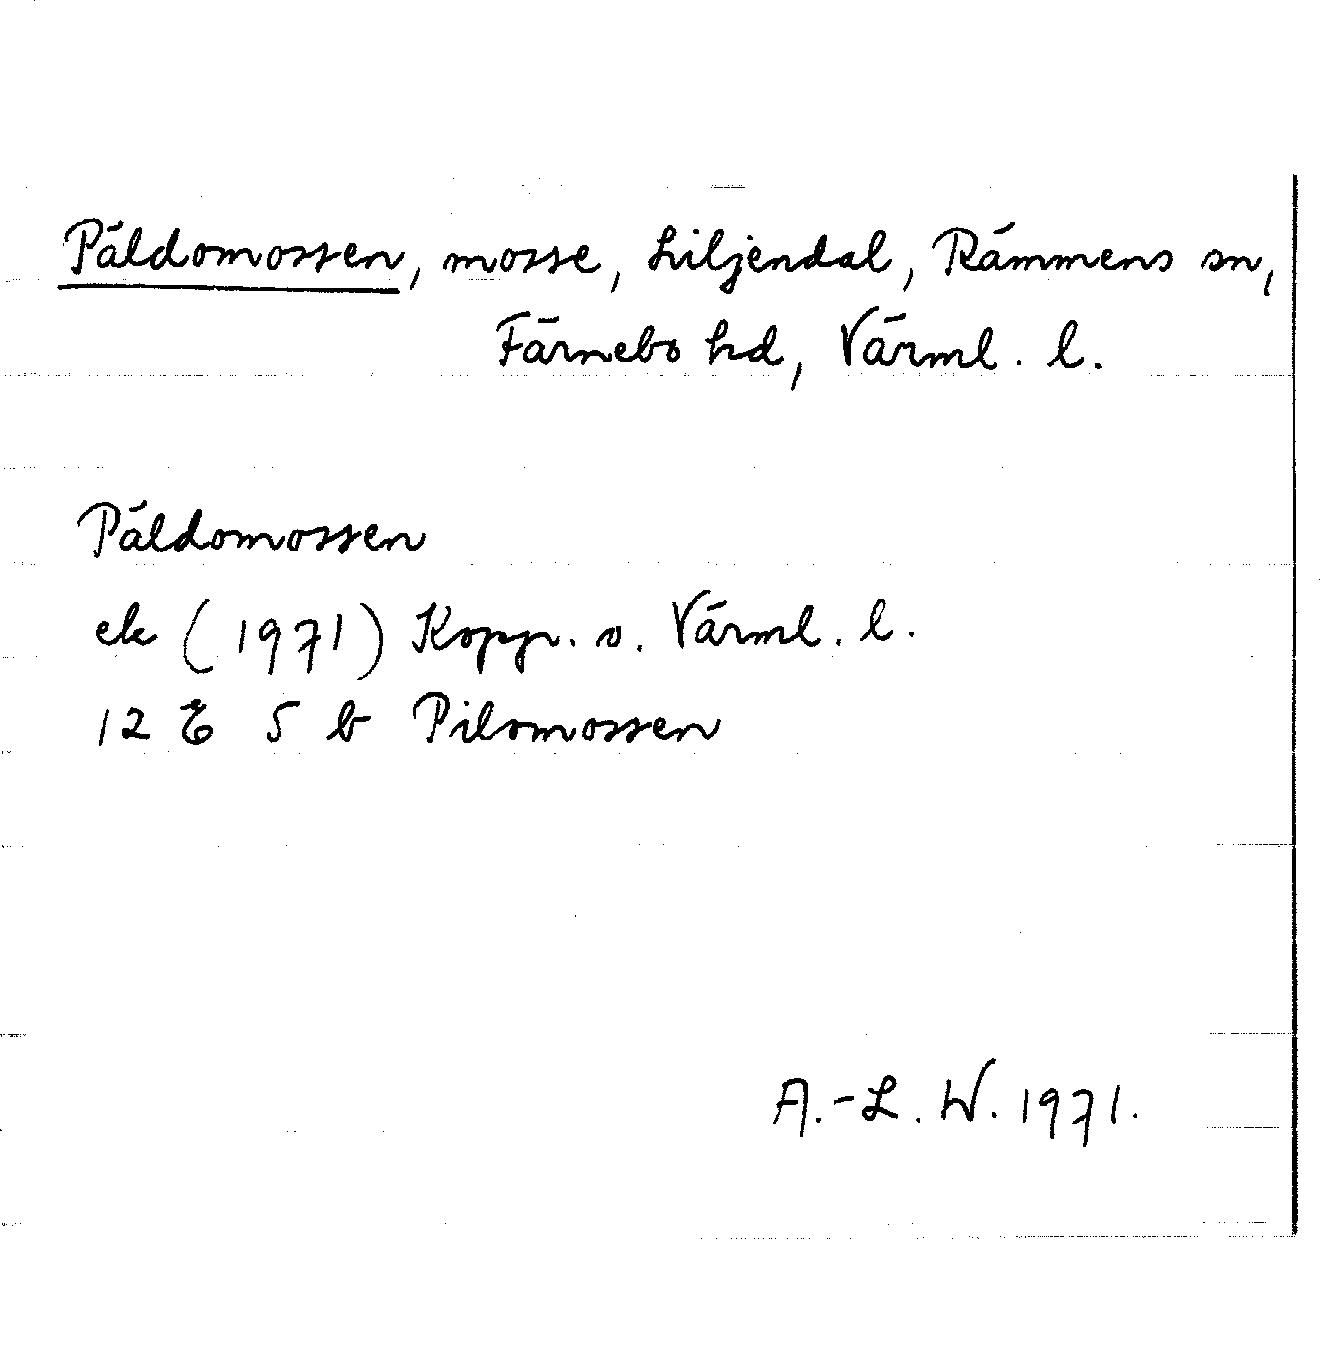 Päldomossen, mosse, Liljendal, Rämmens sn,
Färnebo hd, Värml. l.
Päldomossen
ek (1971) Kopp. o. Värml. l.
12 E 5 b Pilomossen
A.-L. W. 1971.